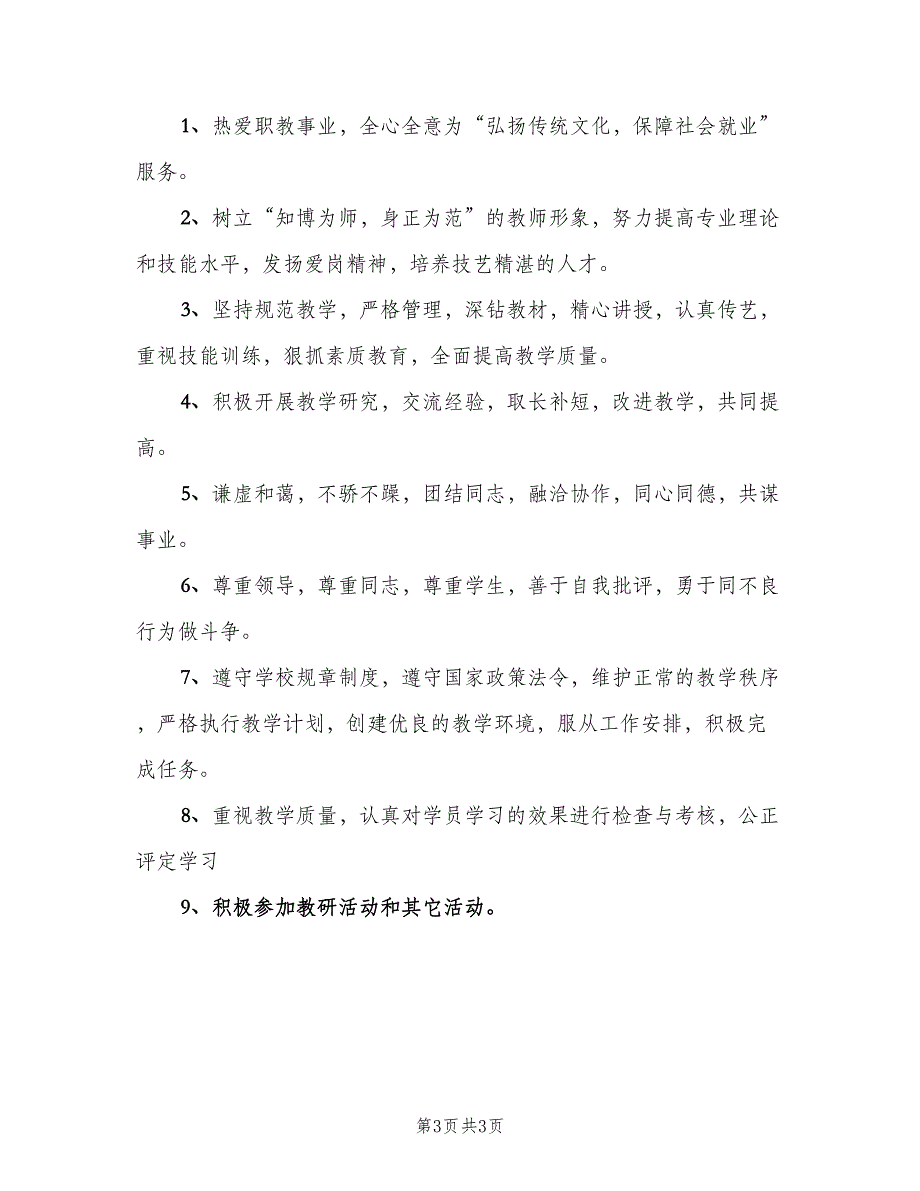 1、热爱职教事业，全心全意为“弘扬传统文化，保障社会就业”
服务。
2、树立“知博为师，身正为范”的教师形象，努力提高专业理论
和技能水平，发扬爱岗精神，培养技艺精湛的人才。
3、坚持规范教学，严格管理，深钻教材，精心讲授，认真传艺，
重视技能训练，狠抓素质教育，全面提高教学质量。
4、积极开展教学研究，交流经验，取长补短，改进教学，共同提
高。
5、谦虚和蔼，不骄不躁，团结同志，融洽协作，同心同德，共谋
事业。
6、尊重领导，尊重同志，尊重学生，善于自我批评，勇于同不良
行为做斗争。
7、遵守学校规章制度，遵守国家政策法令，维护正常的教学秩序
，严格执行教学计划，创建优良的教学环境，服从工作安排，积极完
成任务。
8、重视教学质量，认真对学员学习的效果进行检查与考核，公正
评定学习
9、积极参加教研活动和其它活动。
第3页共3页